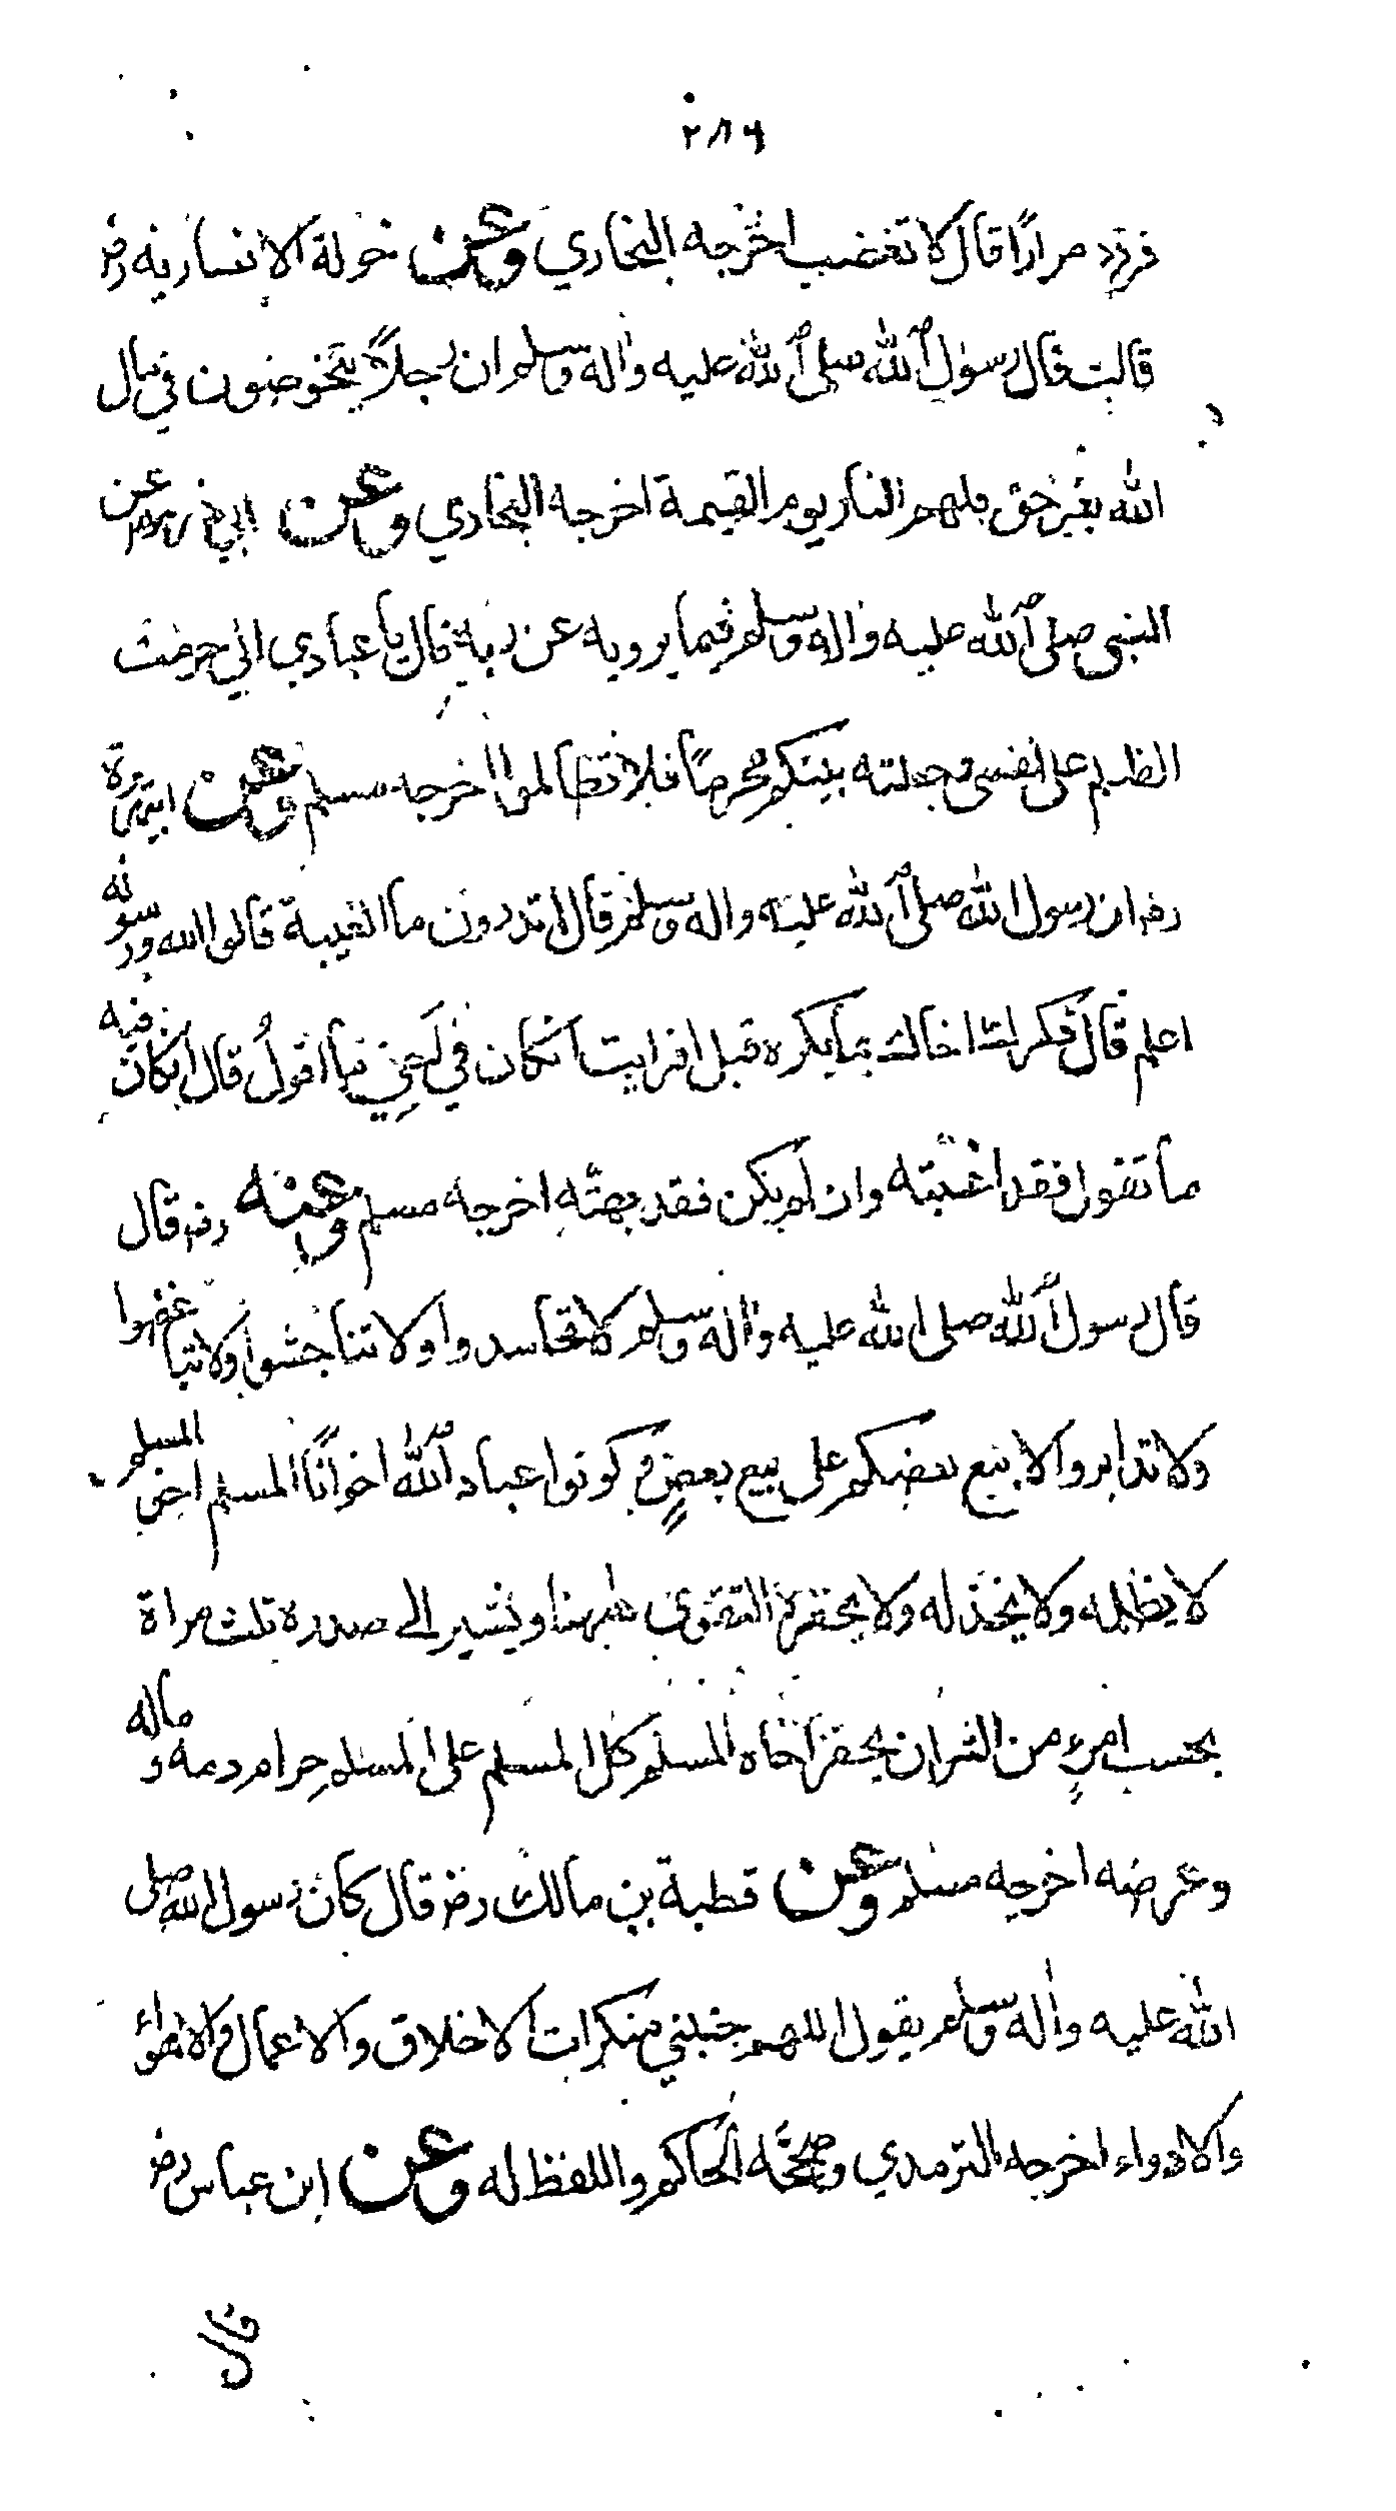 ٢٨٦
فردد مرارًا قال لا تغضب اخرجه البخاري وعن خولة الانصاريه رض
قالت قال رسول الله صلى الله عليه واله وسلم ان رجلاً يتخوضون في مال
الله بغير حق فلهم النار يوم القيمة اخرجه البخاري وعن ابي ذر رض عن
النبي صلى الله عليه واله وسلم فيما يرويه عن ربه قال يا عبادي اني حرمت
الظلم على نفسي وجعلته بينكم محرمًا فلا تظالموا اخرجه مسلم وعن ابي هريرة
رض ان رسول الله صلى الله عليه واله وسلم قال اتدرون ما الغيبة قالوا الله ورسوله
اعلم قال ذكرك اخاك بما يكره قيل افرايت ان كان في اخي ما اقولُ قال ان كان فيه
ما تقول فقد اغتبته وان لم يكن فقد بهته اخرجه مسلم وعنه رض قال
قال رسول الله صلى الله عليه واله وسلم لا تحاسدوا ولا تناجشوا ولا تباغضوا
ولا تدابروا ولا يبع بعضكم على بيع بعضٍ وكونوا عباد الله اخوانًا المسلم اخي المسلم
لا يظلمه ولا يخذله ولا يحقره التقوى ههنا ويشير الى صدره ثلث مراة
بحسب امرءٍ من الشر ان يحقر اخاه المسلم كل المسلم على المسلم حرام دمه وماله
وعرضه اخرجه مسلم وعن قطبة بن مالك رض قال كان رسول الله صلى
الله عليه واله وسلم يقول اللهم جنبني منكرات الاخلاق والاعمال والاهواء
والادواء اخرجه الترمدي وصححه الحاكم واللفظ له وعن ابن عباس رض
قال